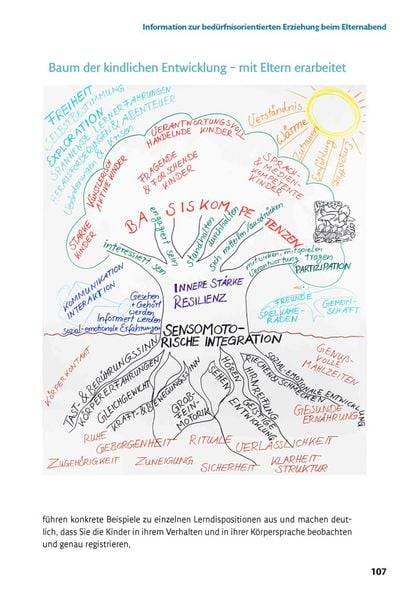 Information zur bedürfnisorientierten Erziehung beim Elternabend
Baum der kindlichen Entwicklung – mit Eltern erarbeitet
FREIHEIT
SELBSTBESTIMMUNG
EXPLORATION
SPANNENDE LERNERFAHRUNGEN
HERAUSFORDERUNGEN & ABENTEUER
Liebhaben & Küssen
VERANTWORTUNGSVOLL
HANDELNDE KINDER
Verständnis
Wärme
Vertrauen
Empathie
KÜNSTLERISCH
AKTIVE KINDER
FRAGENDE
& FORSCHENDE
KINDER
SPRACH-
& MEDIEN-
KOMPETENTE
KINDER
STARKE
KINDER
BASISKOMPETENZEN
interessiert sein
engagiert sein
Standhalten
durchhalten
sich mitteilen/ausdrücken
mitwirken, mitspielen
Verantwortung tragen
PARTIZIPATION
KOMMUNIKATION
INTERAKTION
Gesehen
+ Gehört
werden
Informiert werden
Sozial-emotionale Erfahrungen
INNERE STÄRKE
RESILIENZ
FREUNDE
SPIELKAME-
RADEN
GEMEIN-
SCHAFT
SENSOMOTO-
RISCHE INTEGRATION
KÖRPERKONTAKT
TAST- & BERÜHRUNGSSINN
KÖRPERERFAHRUNGEN
GLEICHGEWICHT
KRAFT- & BEWEGUNGSSINN
GROß-
FEIN-
MOTORIK
SEHEN
HÖREN
RIECHEN/SCHMECKEN
HIRNREIFUNG
GEISTIGE
ENTWICKLUNG
SOZIAL EMOTIONALE ENTWICKLUNG
GENUß-
VOLLE
MAHLZEITEN
GESUNDE
ERNÄHRUNG
RUHE
GEBORGENHEIT
RITUALE
VERLÄSSLICHKEIT
ZUGEHÖRIGKEIT
ZUNEIGUNG
SICHERHEIT
KLARHEIT
STRUKTUR
führen konkrete Beispiele zu einzelnen Lerndispositionen aus und machen deut-
lich, dass Sie die Kinder in ihrem Verhalten und in ihrer Körpersprache beobachten
und genau registrieren.
107